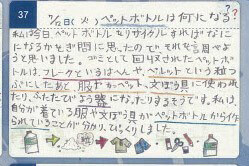 37
7/12日(火)ペットボトルは何になる??
私は今日ペットボトルをリサイクルすればなにに
なるかなぎ問に思ったのでそれを調べよ
うと思いました。どこして回しゅうされたペットボトル
は、フレークというはへんや、ペレットという粒つ
ぶにしたあと服やカーペット、文ぼう具に使われ
たり、ふたたびようきになったりするそうです。私は、
自分が着ている服や文ぼう具がペットボトルから作
されていることが分かり、びっくりしました。